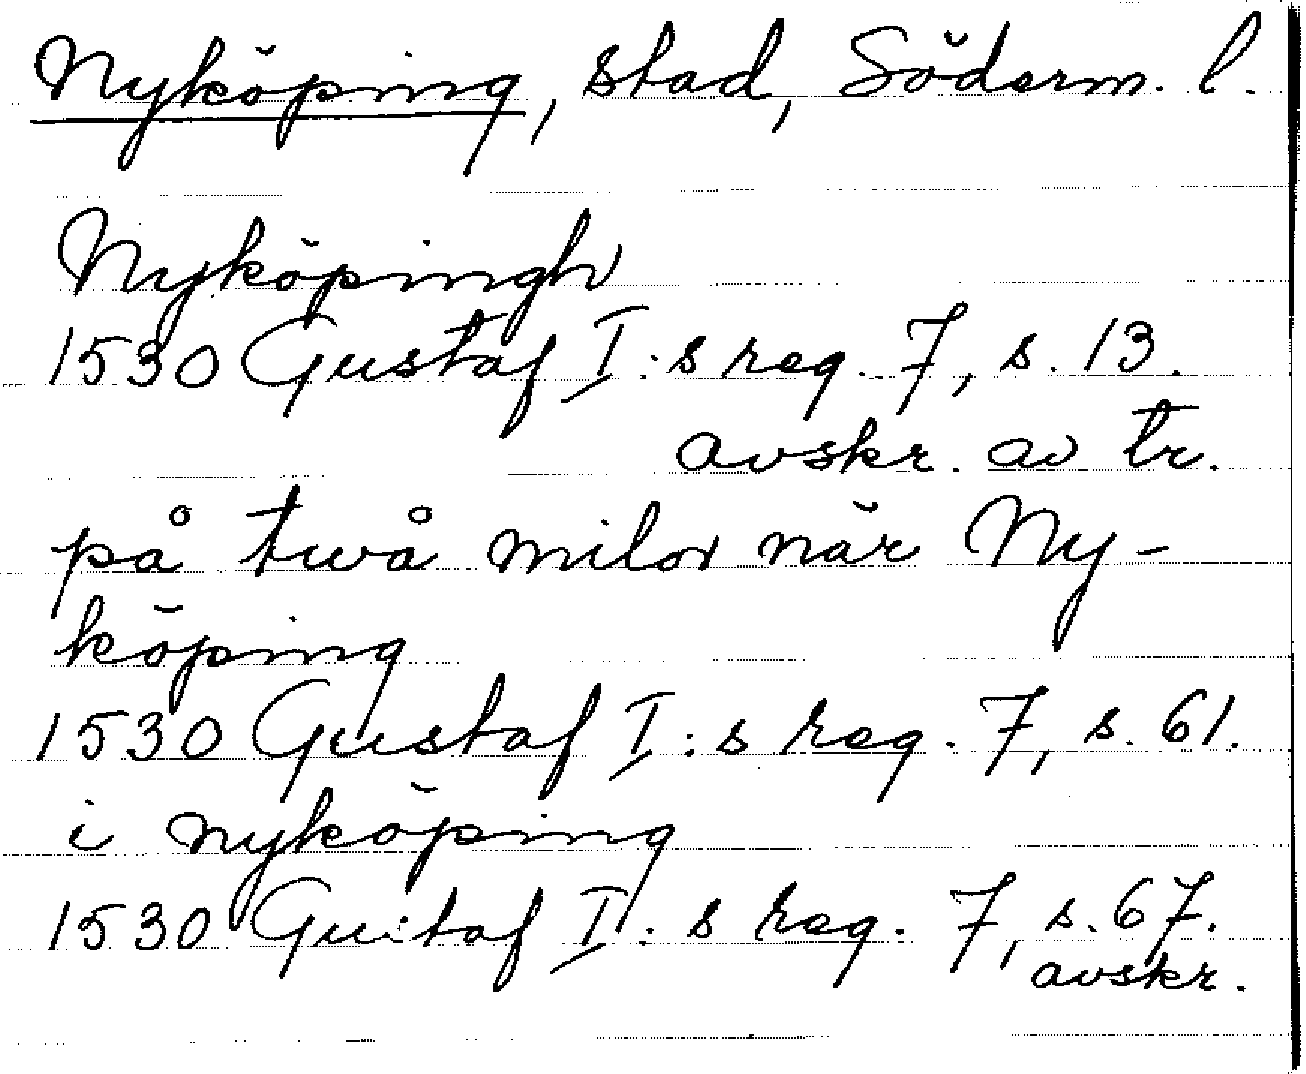 Nyköping, stad, Söderm. l.
Nyköpingh
1530 Gustaf I:s reg. 7, s. 13.
avskr. av tr.
på twå milor när Ny-
köping
1530 Gustaf I:s reg. 7, s. 61.
i nyköping
1530 Gustaf I:s reg. 7, s. 67.
avskr.